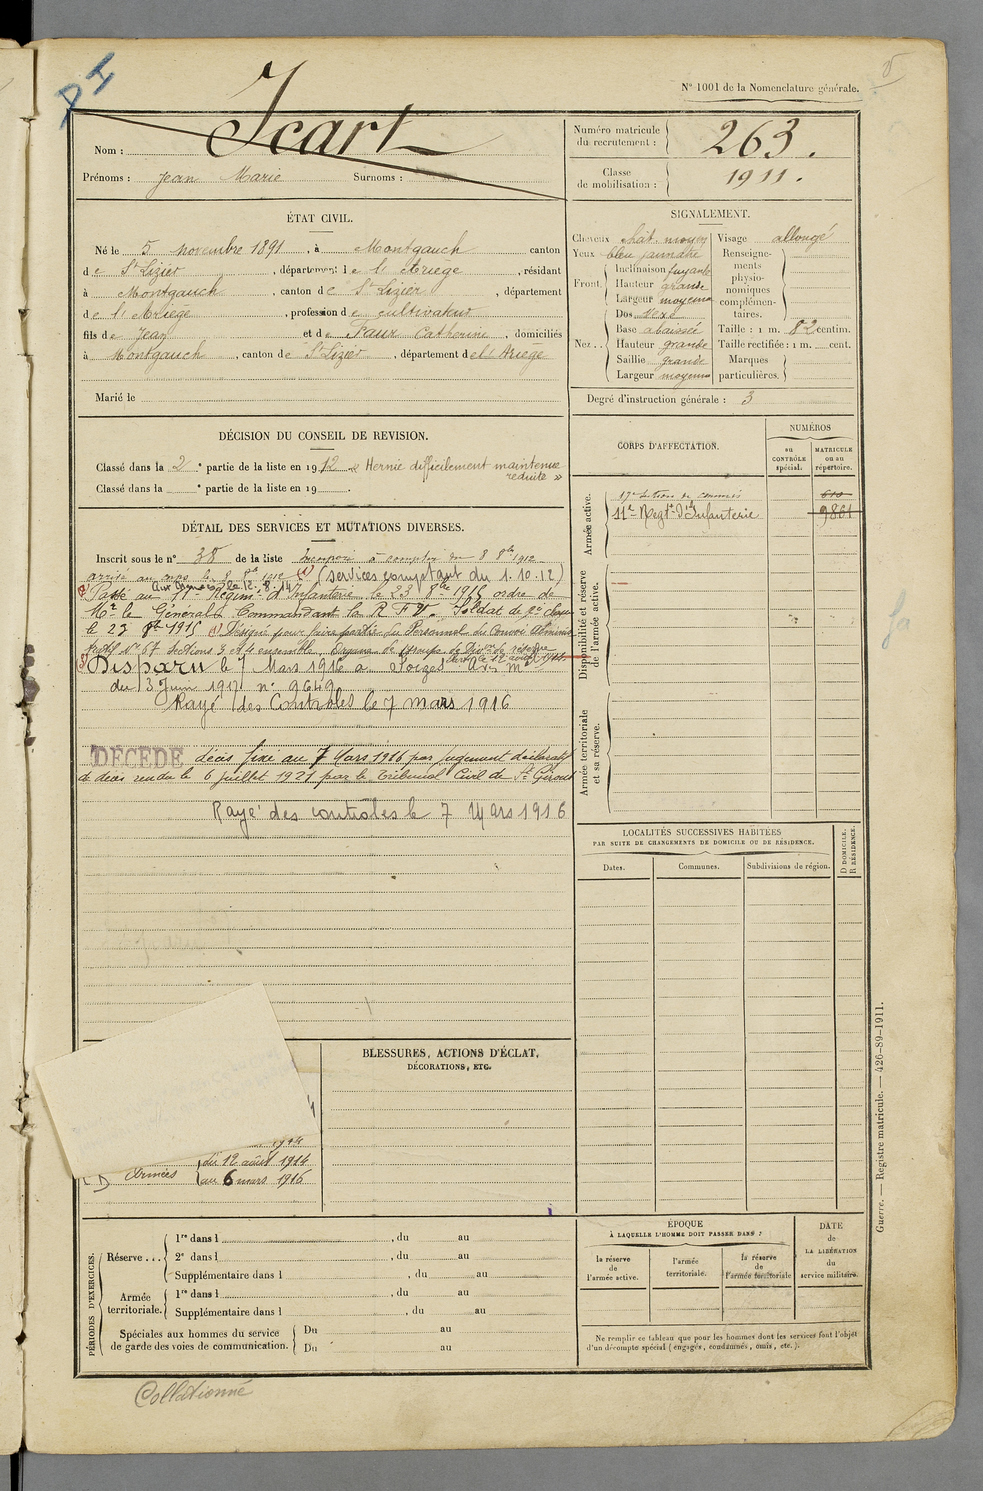 N° 1001 de la Nomenclature générale.
Nom : Icart
Prénoms : Jean Marie Surnoms :
Numéro matricule du recrutement : 263.
Classe de mobilisation : 1911.
ÉTAT CIVIL.
Né le 5 novembre 1891, à Montgauch canton
de St Lizier, département de l'Ariège, résidant
à Montgauch, canton de St Lizier, département
de l'Ariège, profession de cultivateur
fils de Jean et de Faur Catherine, domiciliés
à Montgauch, canton de St Lizier, département de l'Ariège
Marié le
SIGNALEMENT.
Cheveux chât. moyen Visage allongé
Yeux bleu jaunâtre
Front. Inclinaison fuyante
Hauteur grande
Largeur moyenne
Nez .. Dos vexé
Base abaissée
Hauteur grande
Saillie grande
Largeur moyenne
Renseignements physionomiques complémentaires.
Taille : 1 m. 82 centim.
Taille rectifiée : 1 m. cent.
Marques particulières.
Degré d'instruction générale : 3
DÉCISION DU CONSEIL DE REVISION.
Classé dans la 2e partie de la liste en 1912 « Hernie difficilement maintenue
réduite »
Classé dans la e partie de la liste en 19
DÉTAIL DES SERVICES ET MUTATIONS DIVERSES.
Inscrit sous le n° 38 de la liste Incorporé à compter du 8 8bre 1912
arrivé au corps le 8 8bre 1912 (services comptant du 1.10.12)
Aux Armées le 12.8.14
Passé au 11e Régimt d'Infanterie le 23 8bre 1915 ordre de
Mr le Général Commandant la R F V. Soldat de 2e classe
le 23 8bre 1915 (1) Désigné pour faire partie du Personnel du Convoi Adminis
tratif N° 67 Sections 3 et 4 ensemble. Organe de Groupe de Divons de réserve
Disparu le 7 Mars 1916 à Avis ml
du 13 Juin 1917 n° 9649
Rayé des Contrôles le 7 mars 1916
DÉCÉDÉ décès fixé au 7 Mars 1916 par jugement déclaratif
de décès rendu le 6 juillet 1921 par le Tribunal Civil de St Girons
Rayé des contrôles le 7 Mars 1916
CORPS D'AFFECTATION.
NUMÉROS
au CONTRÔLE spécial.
MATRICULE ou au répertoire.
Armée active.
17e Section de commis 610
11e Regt d'Infanterie 9861
Disponibilité et réserve de l'armée active.
Armée territoriale et sa réserve.
LOCALITÉS SUCCESSIVES HABITÉES
PAR SUITE DE CHANGEMENTS DE DOMICILE OU DE RÉSIDENCE.
Dates. Communes. Subdivisions de région.
D DOMICILE.
R RÉSIDENCE.
BLESSURES, ACTIONS D'ÉCLAT,
DÉCORATIONS, ETC.
1914
Armées du 12 août 1914
au 6 mars 1916
PÉRIODES D'EXERCICES.
Réserve ... 1re dans l , du au
2e dans l , du au
Supplémentaire dans l , du au
Armée territoriale. 1re dans l , du au
Supplémentaire dans l , du au
Spéciales aux hommes du service
de garde des voies de communication.
Du au
Du au
ÉPOQUE
À LAQUELLE L'HOMME DOIT PASSER DANS :
la réserve de l'armée active.
l'armée territoriale.
la réserve de l'armée territoriale
DATE de LA LIBÉRATION du service militaire.
Ne remplir ce tableau que pour les hommes dont les services font l'objet
d'un décompte spécial (engagés, condamnés, omis, etc.).
Guerre. — Registre matricule. — 426-89-1911.
Collationné